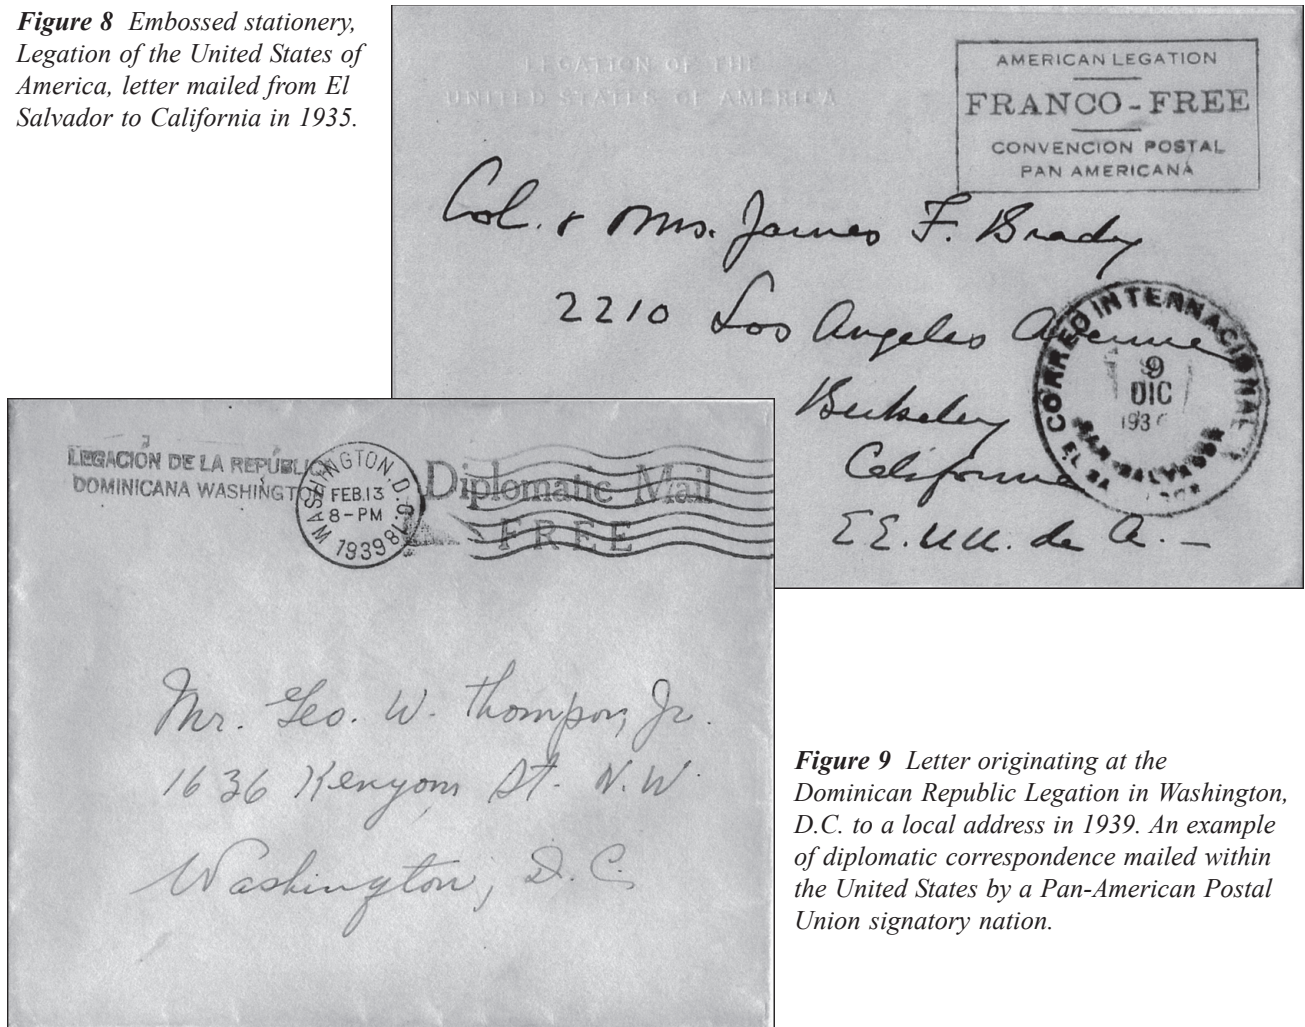 Figure 8 Embossed stationery,
Legation of the United States of
America, letter mailed from El
Salvador to California in 1935.
LEGATION OF THE
UNITED STATES OF AMERICA
AMERICAN LEGATION
FRANCO-FREE
CONVENCION POSTAL
PAN AMERICANA
Col. & Mrs. James F. Brady
2210 Los Angeles Avenue
Berkeley
California
EE. UU. de A. —
CORREO INTERNACIONAL
9
DIC
SAN SALVADOR
EL
LEGACIÓN DE LA REPÚBLICA
DOMINICANA WASHINGTON
WASHINGTON, D.C.
FEB.13
8-PM
1939
Diplomatic Mail
FREE
Mr. Geo. W. Thompson, Jr.
1636 Kenyon St. N.W.
Washington, D.C.
Figure 9 Letter originating at the
Dominican Republic Legation in Washington,
D.C. to a local address in 1939. An example
of diplomatic correspondence mailed within
the United States by a Pan-American Postal
Union signatory nation.